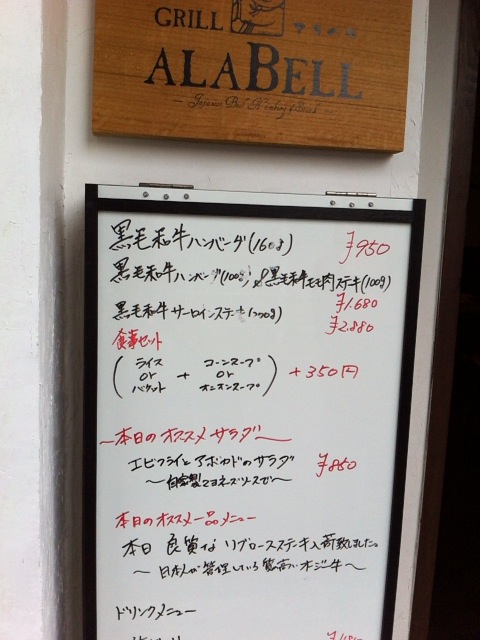 GRILL
ALABELL
黒毛和牛ハンバーグ(160g) ¥950
黒毛和牛ハンバーグ(100g)&黒毛和牛モモ肉ステーキ(100g)
¥1.680
黒毛和牛サーロインステーキ(200g) ¥2.880
食事セット
(ライス or バケット + コーンスープ or オニオンスープ) +350円
~本日のオススメサラダ~
エビフライとアボカドのサラダ ¥850
~自家製マヨネーズソースで~
本日のオススメ一品メニュー
本日 良質な リブロースステーキ入荷致しました。
~日本人が管理している質の高いオージー牛~
ドリンクメニュー